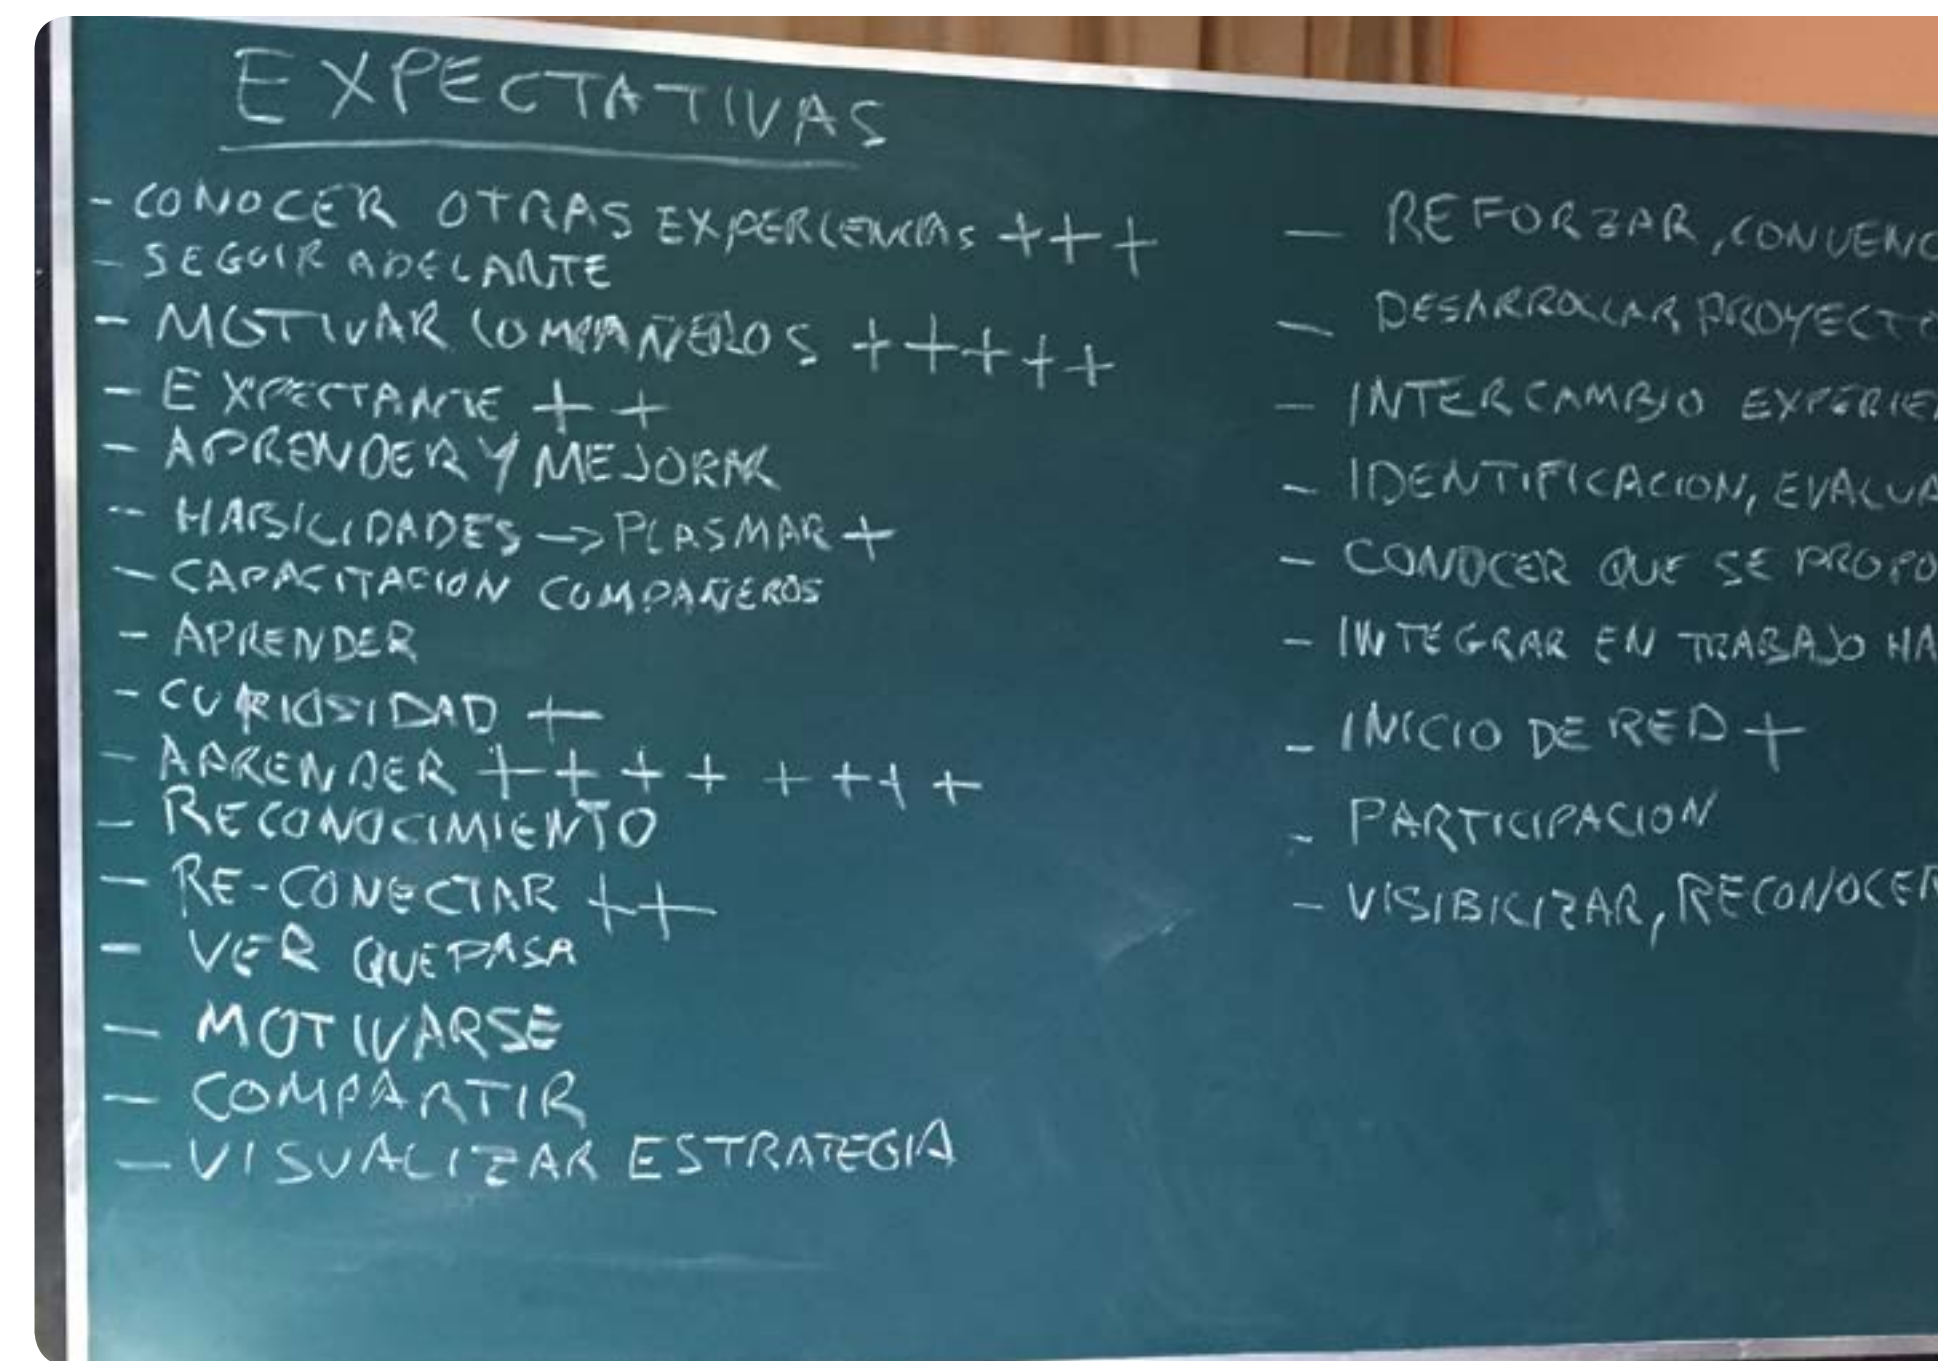 EXPECTATIVAS
- CONOCER OTRAS EXPERIENCIAS +++
- SEGUIR ADELANTE
- MOTIVAR COMPAÑEROS +++++
- EXPECTANTE ++
- APRENDER Y MEJORAR
- HABILIDADES -> PLASMAR +
- CAPACITACION COMPAÑEROS
- APRENDER
- CURIOSIDAD +
- APRENDER ++++++++
- RECONOCIMIENTO
- RE-CONECTAR ++
- VER QUE PASA
- MOTIVARSE
- COMPARTIR
- VISUALIZAR ESTRATEGIA
- REFORZAR, CONVENC
- DESARROLLAR PROYECTO
- INTERCAMBIO EXPERIE
- IDENTIFICACION, EVALUA
- CONOCER QUE SE PROPO
- INTEGRAR EN TRABAJO HA
- INICIO DE RED +
- PARTICIPACION
- VISIBILIZAR, RECONOCER